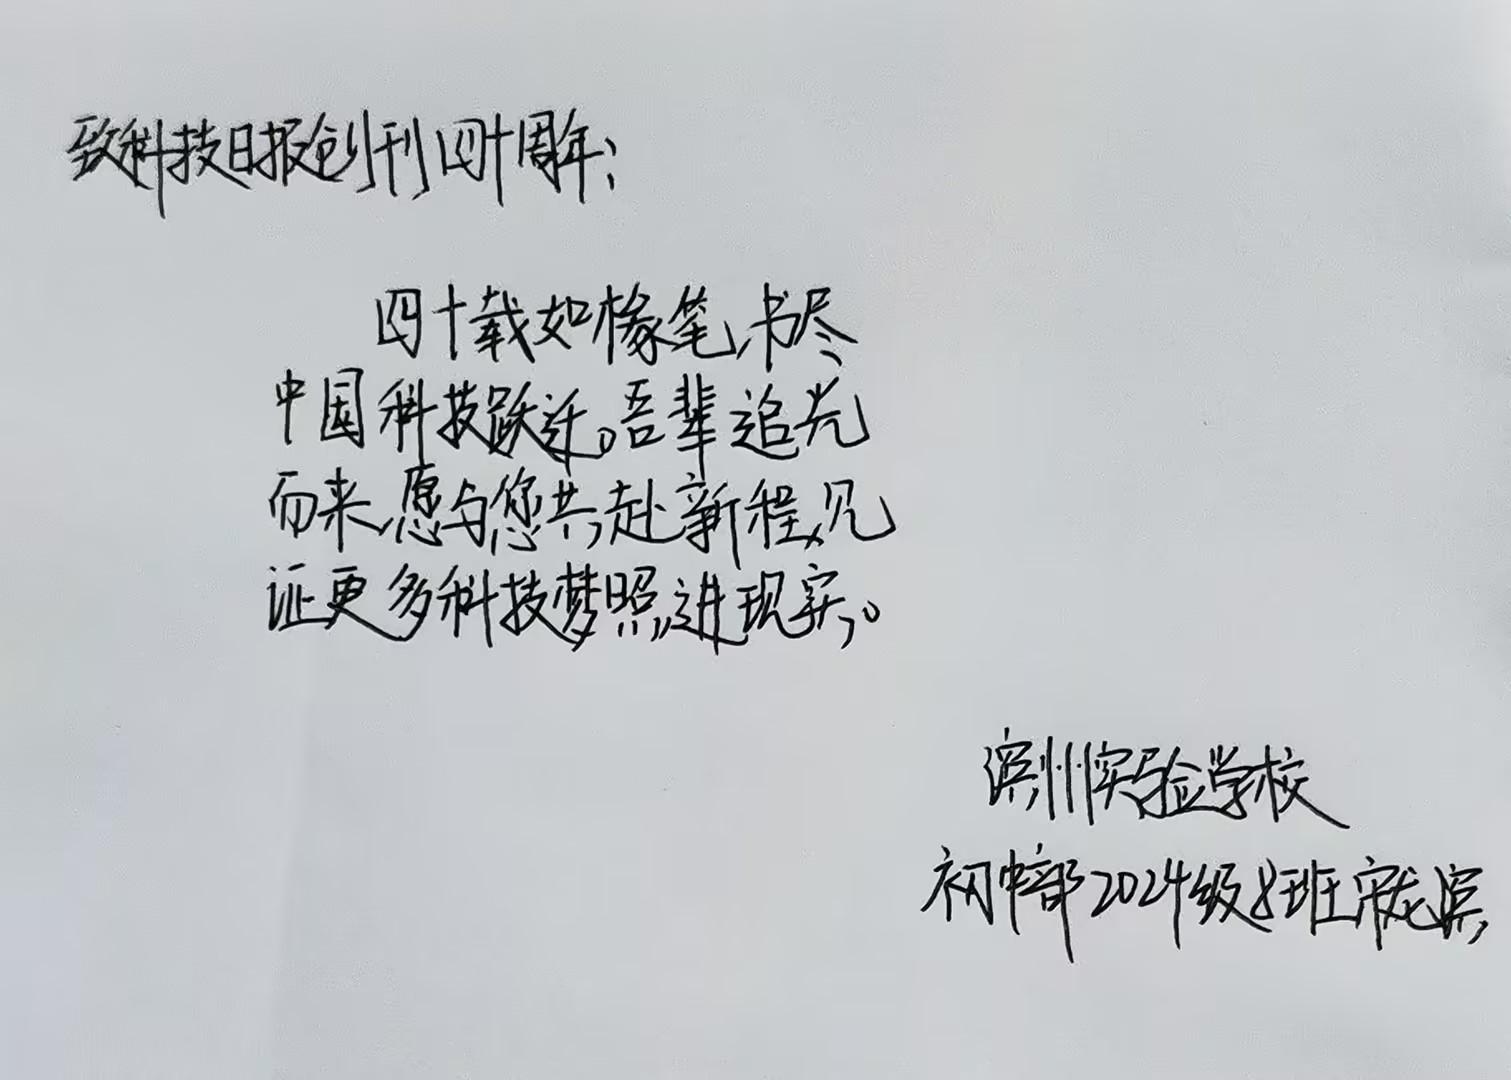 致科技日报创刊四十周年：
四十载如椽笔,书尽
中国科技跃迁。吾辈追光
而来,愿与您共赴新程,见
证更多科技梦照进现实。
滨州实验学校
初中部2024级8班宋龙滨